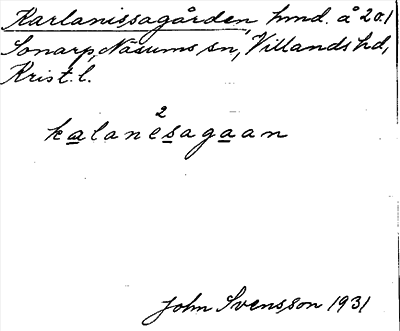 Karlanissagården, hmd. å 20:1
Sonarp, Näsums sn, Villands hd,
Krist. l.
2
kalanesagaan
John Svensson 1931